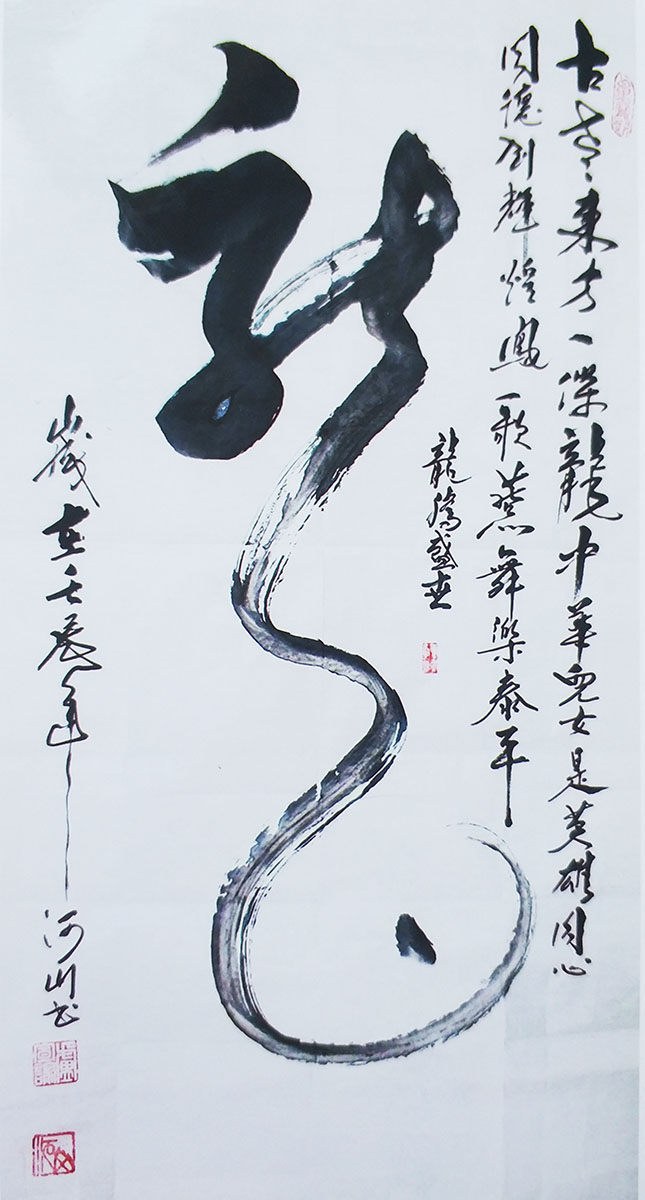 古老東方一條龍中華兒女是英雄同心
同德创輝煌鳳歌燕舞樂泰平
龍騰盛世
龙
歲在壬辰年河山书